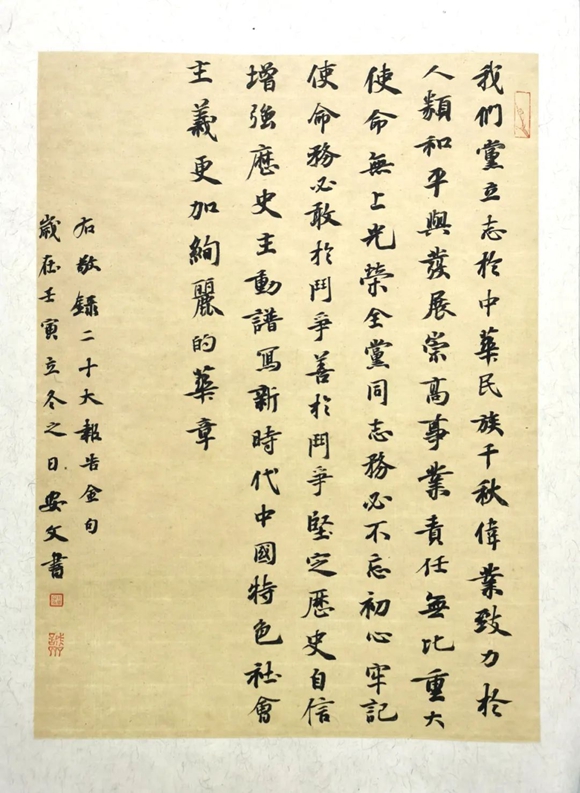 我們黨立志於中華民族千秋偉業致力於
人類和平與發展崇高事業責任無比重大
使命無上光榮全黨同志務必不忘初心牢記
使命務必敢於鬥爭善於鬥爭堅定歷史自信
增強歷史主動譜寫新時代中國特色社會
主義更加絢麗的華章
右敬錄二十大報告金句
歲在壬寅立冬之日安文書